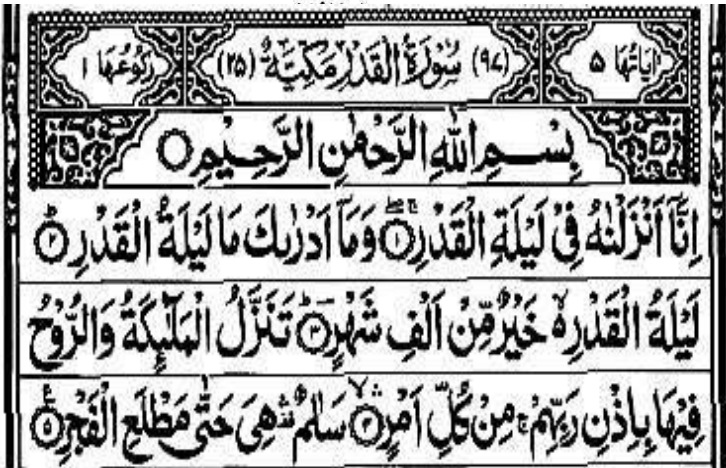 اٰيَاتُهَا ۵ (۹۷) سُوۡرَةُ الۡقَدۡرِ مَكِّيَّةٌ (۲۵) رُكُوۡعُهَا ۱
بِسۡمِ اللّٰهِ الرَّحۡمٰنِ الرَّحِيۡمِ ○
اِنَّاۤ اَنۡزَلۡنٰهُ فِىۡ لَيۡلَةِ الۡقَدۡرِ ۚۖ ‏﴿۱﴾ وَمَاۤ اَدۡرٰٮكَ مَا لَيۡلَةُ الۡقَدۡرِؕ ‏﴿۲﴾
لَيۡلَةُ الۡقَدۡرِ ۙ خَيۡرٌ مِّنۡ اَلۡفِ شَهۡرٍؕ ‏﴿۳﴾ تَنَزَّلُ الۡمَلٰٓٮِٕكَةُ وَالرُّوۡحُ
فِيۡهَا بِاِذۡنِ رَبِّهِمۡ​ۚ مِنۡ كُلِّ اَمۡرٍ ۛۙ ‏﴿۴﴾ سَلٰمٌ ۛ هِىَ حَتّٰى مَطۡلَعِ الۡفَجۡرِ ‏﴿۵﴾